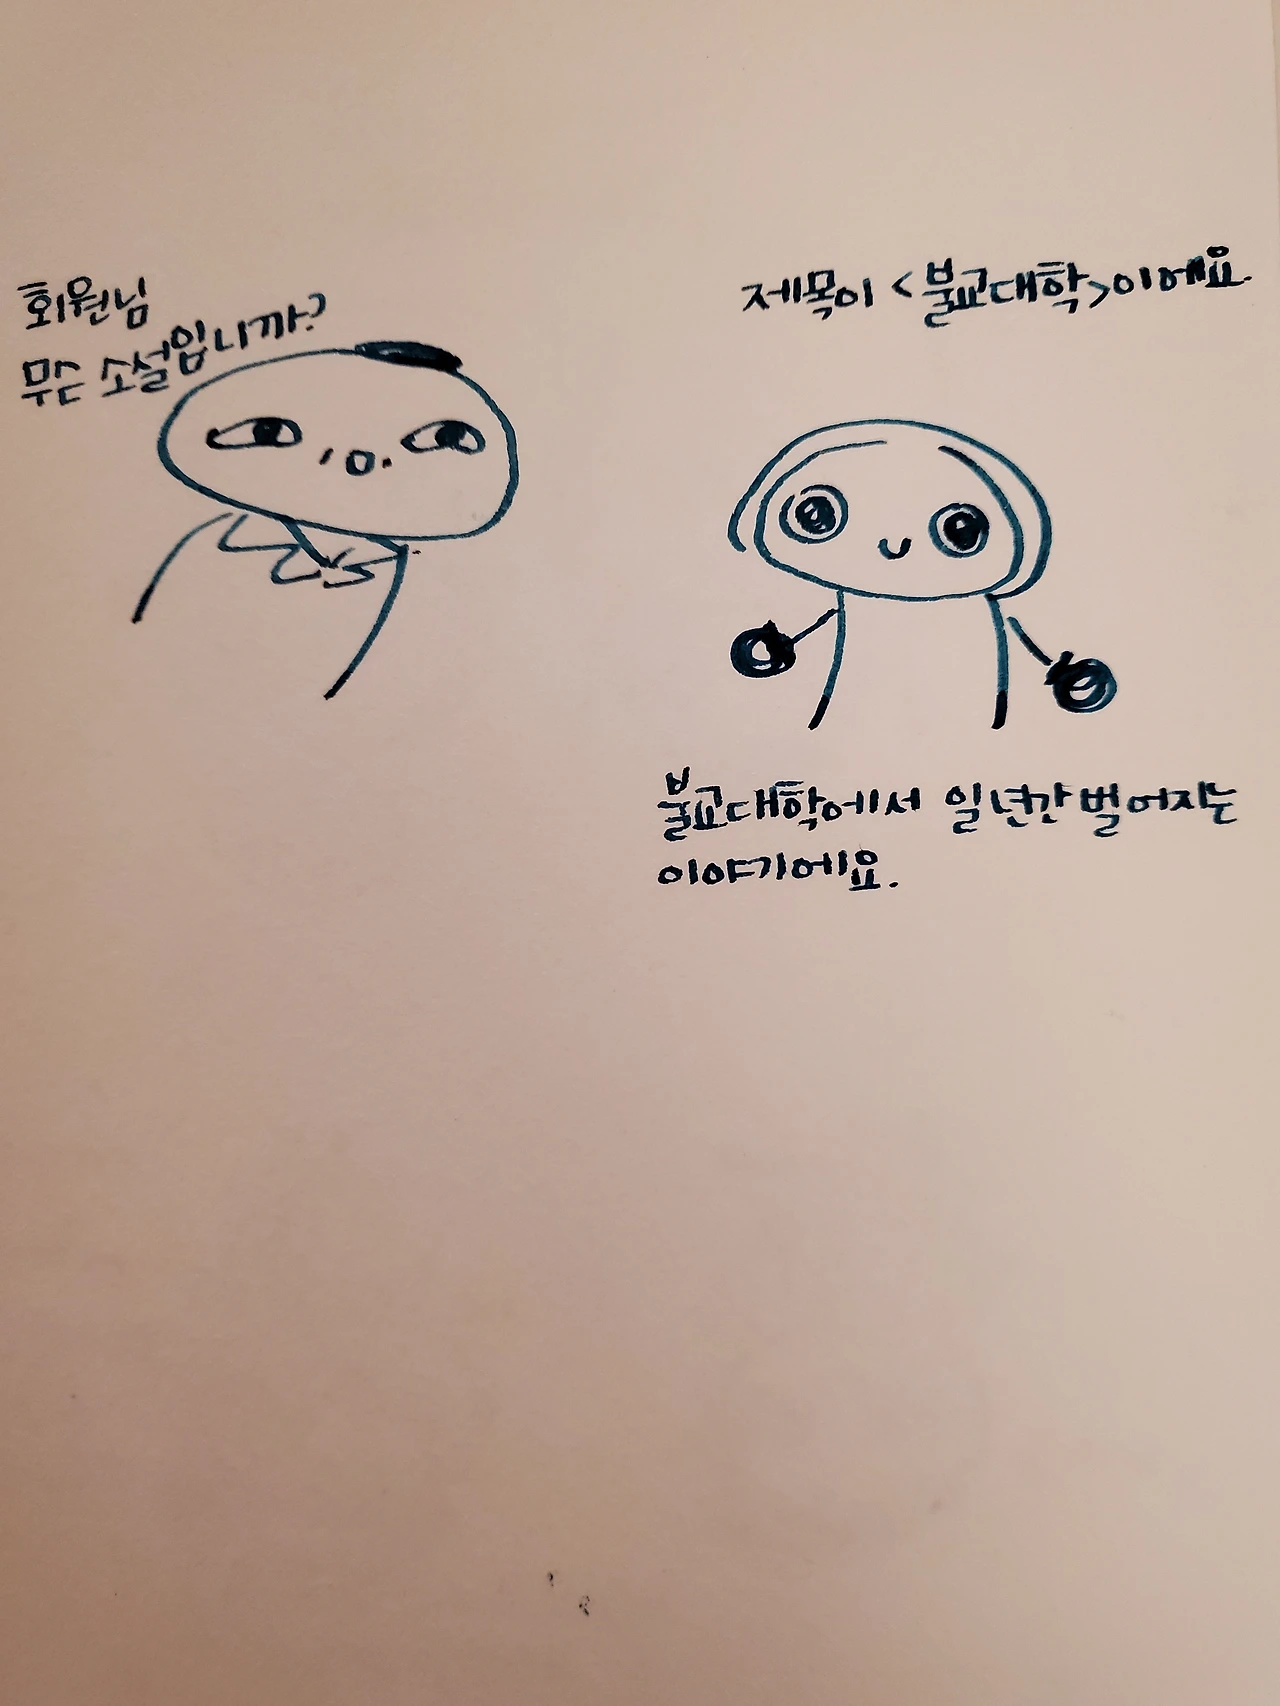 회원님
무슨 소설입니까?
제목이 <불교대학>이에요.
불교대학에서 일년간 벌어지는
이야기에요.